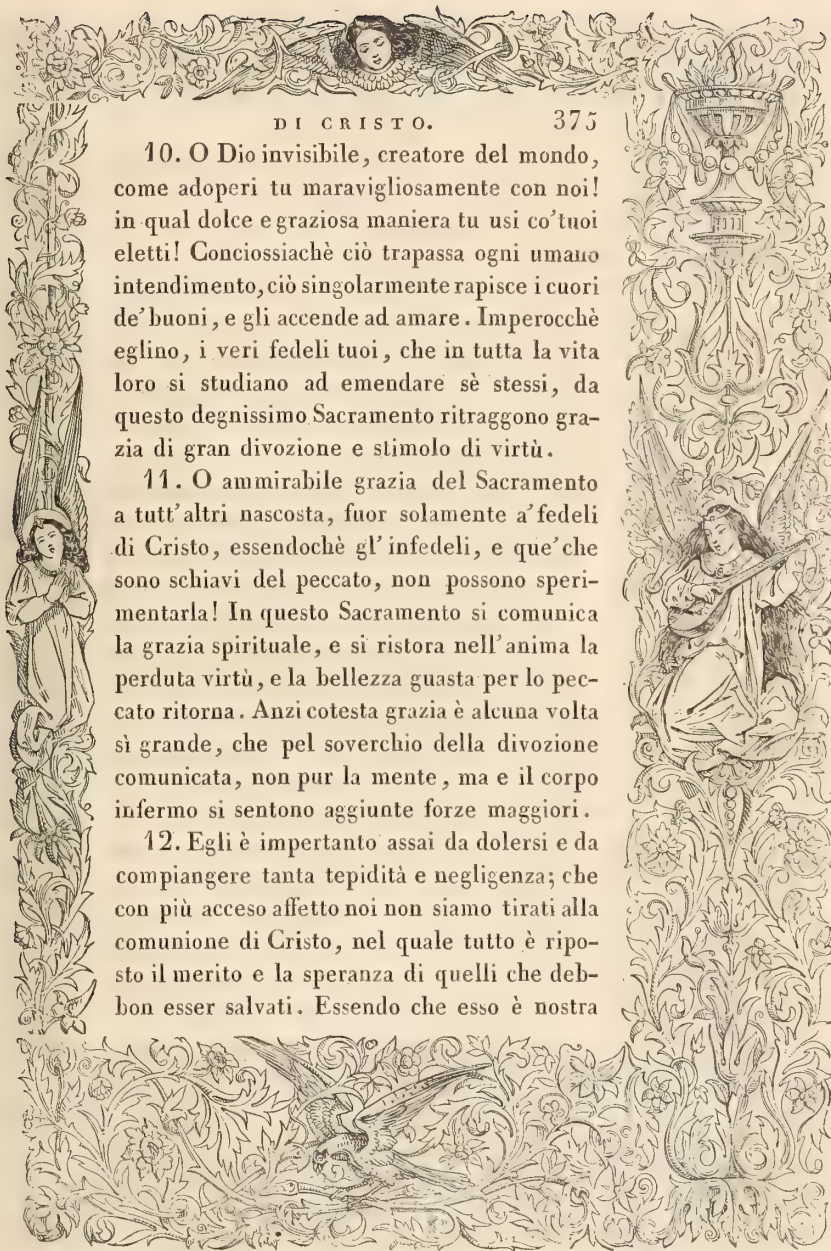 DI CRISTO. 375
10. O Dio invisibile, creatore del mondo,
come adoperi tu maravigliosamente con noi!
in qual dolce e graziosa maniera tu usi co'tuoi
eletti! Conciossiachè ciò trapassa ogni umano
intendimento, ciò singolarmente rapisce i cuori
de'buoni, e gli accende ad amare. Imperocchè
eglino, i veri fedeli tuoi, che in tutta la vita
loro si studiano ad emendare sè stessi, da
questo degnissimo Sacramento ritraggono gra-
zia di gran divozione e stimolo di virtù.
11. O ammirabile grazia del Sacramento
a tutt'altri nascosta, fuor solamente a'fedeli
di Cristo, essendochè gl'infedeli, e que'che
sono schiavi del peccato, non possono speri-
mentarla! In questo Sacramento si comunica
la grazia spirituale, e si ristora nell'anima la
perduta virtù, e la bellezza guasta per lo pec-
cato ritorna. Anzi cotesta grazia è alcuna volta
sì grande, che pel soverchio della divozione
comunicata, non pur la mente, ma e il corpo
infermo si sentono aggiunte forze maggiori.
12. Egli è impertanto assai da dolersi e da
compiangere tanta tepidità e negligenza; che
con più acceso affetto noi non siamo tirati alla
comunione di Cristo, nel quale tutto è ripo-
sto il merito e la speranza di quelli che deb-
bon esser salvati. Essendo che esso è nostra